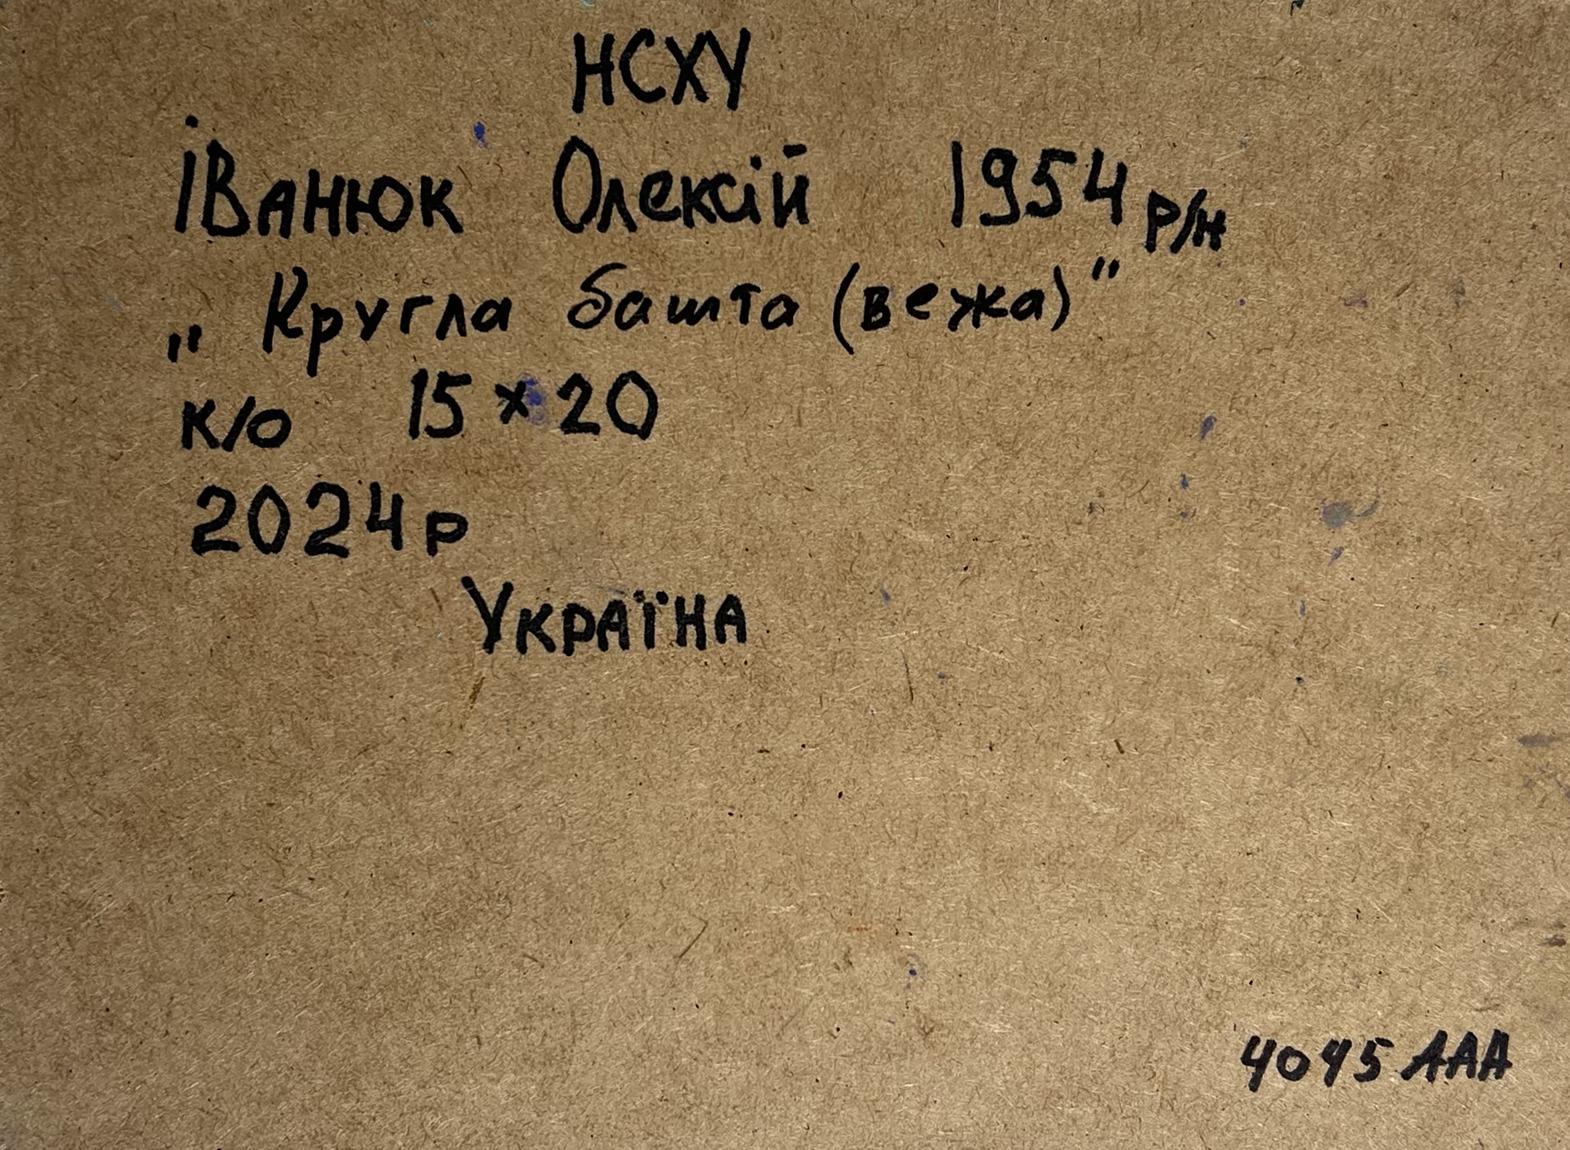 НСХУ
Іванюк Олексій 1954 р/н
„Кругла башта (вежа)"
к/о 15×20
2024р
Україна
4045 ААА